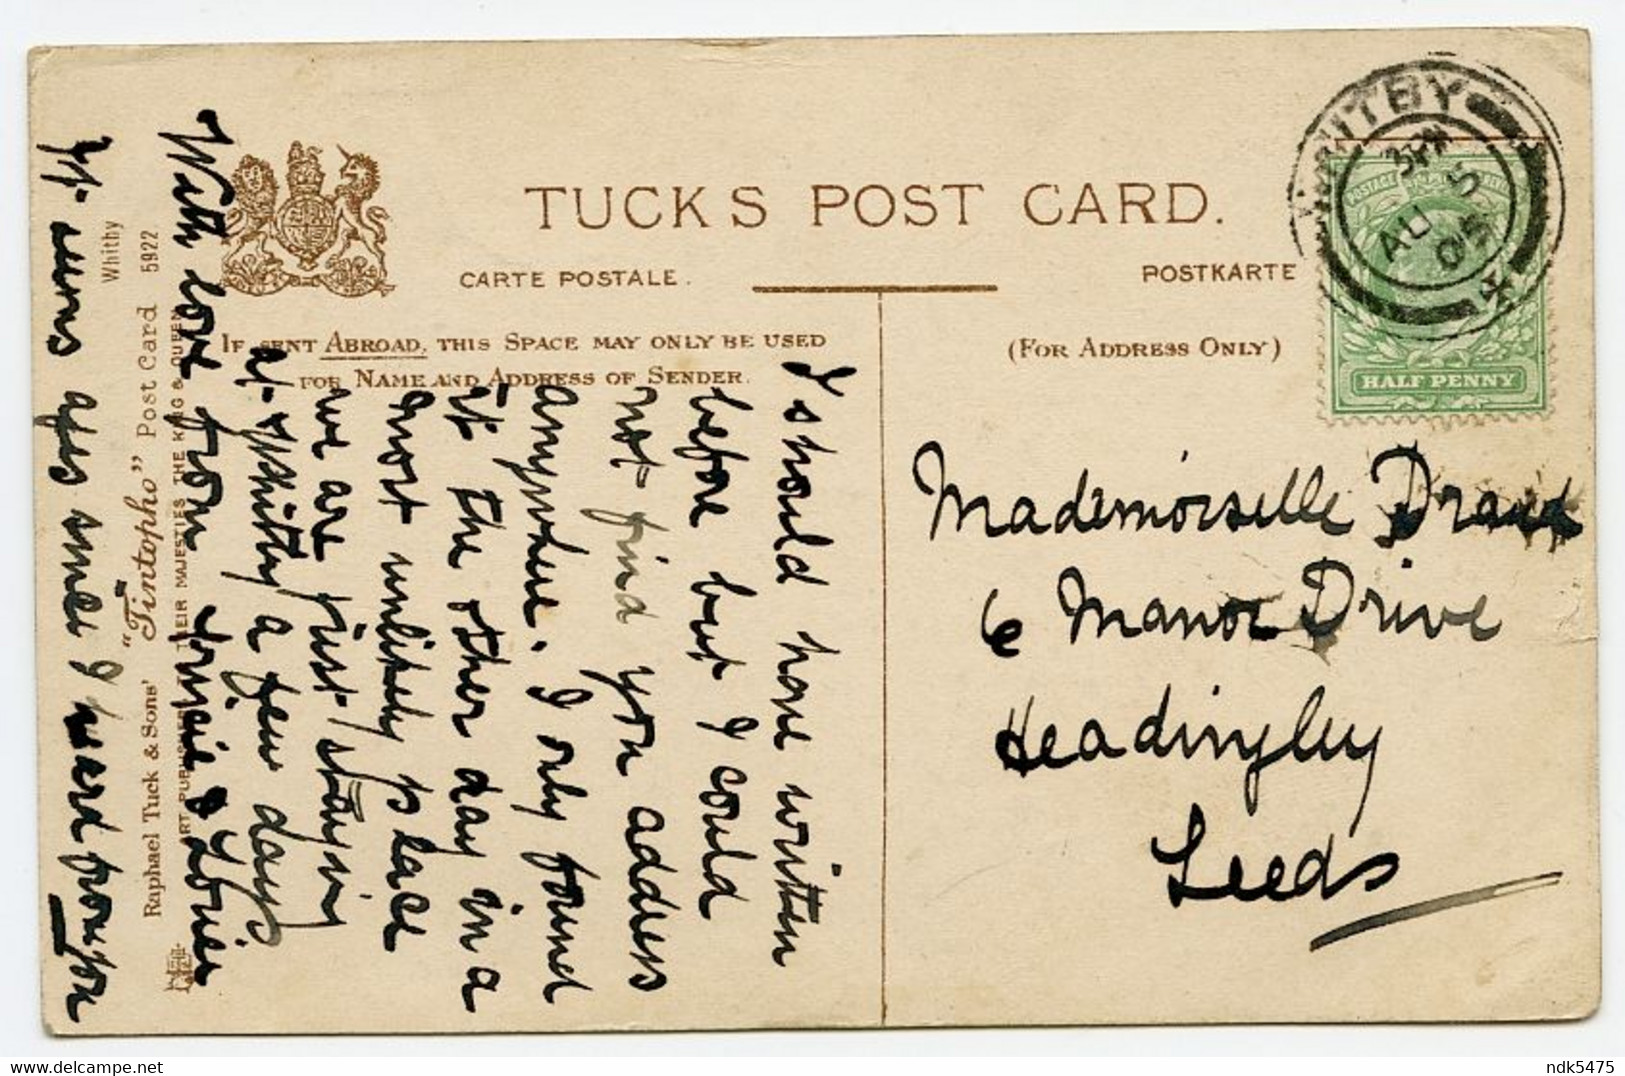 TUCK'S POST CARD.
CARTE POSTALE.
POSTKARTE
IF SENT ABROAD, THIS SPACE MAY ONLY BE USED
FOR NAME AND ADDRESS OF SENDER.
(FOR ADDRESS ONLY)
WHITBY
3 PM
AU 5
05
HALF PENNY
Mademoiselle
6 Manor Drive
Headingley
Leeds
I should have written
before but I could
not find you address
anywhere. I only found
it the other day in a
most unlikely place
we are just staying
at Whitby a few days
With love from &
It seems ages since I heard from you
Raphael Tuck & Sons' "Tintopho" Post Card 5922
Whitby
ART PUBLISHERS TO THEIR MAJESTIES THE KING & QUEEN
www.delcampe.net
ndk5475